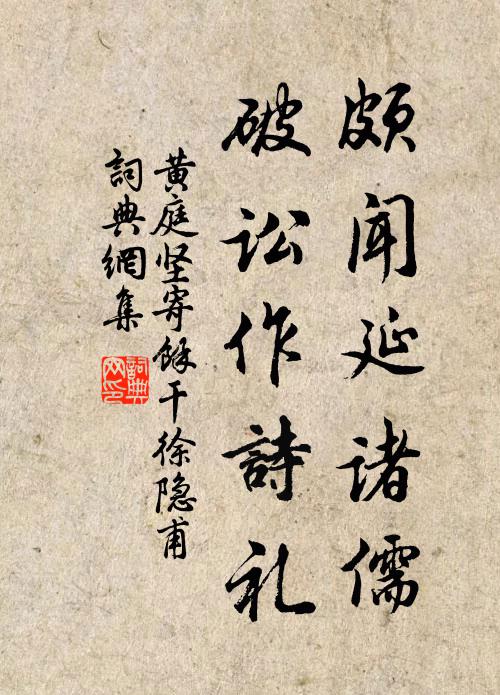 颇闻延诸儒
破讼作詩礼
黄庭坚寄馀干徐隐甫
詞典網集
詞典
网印